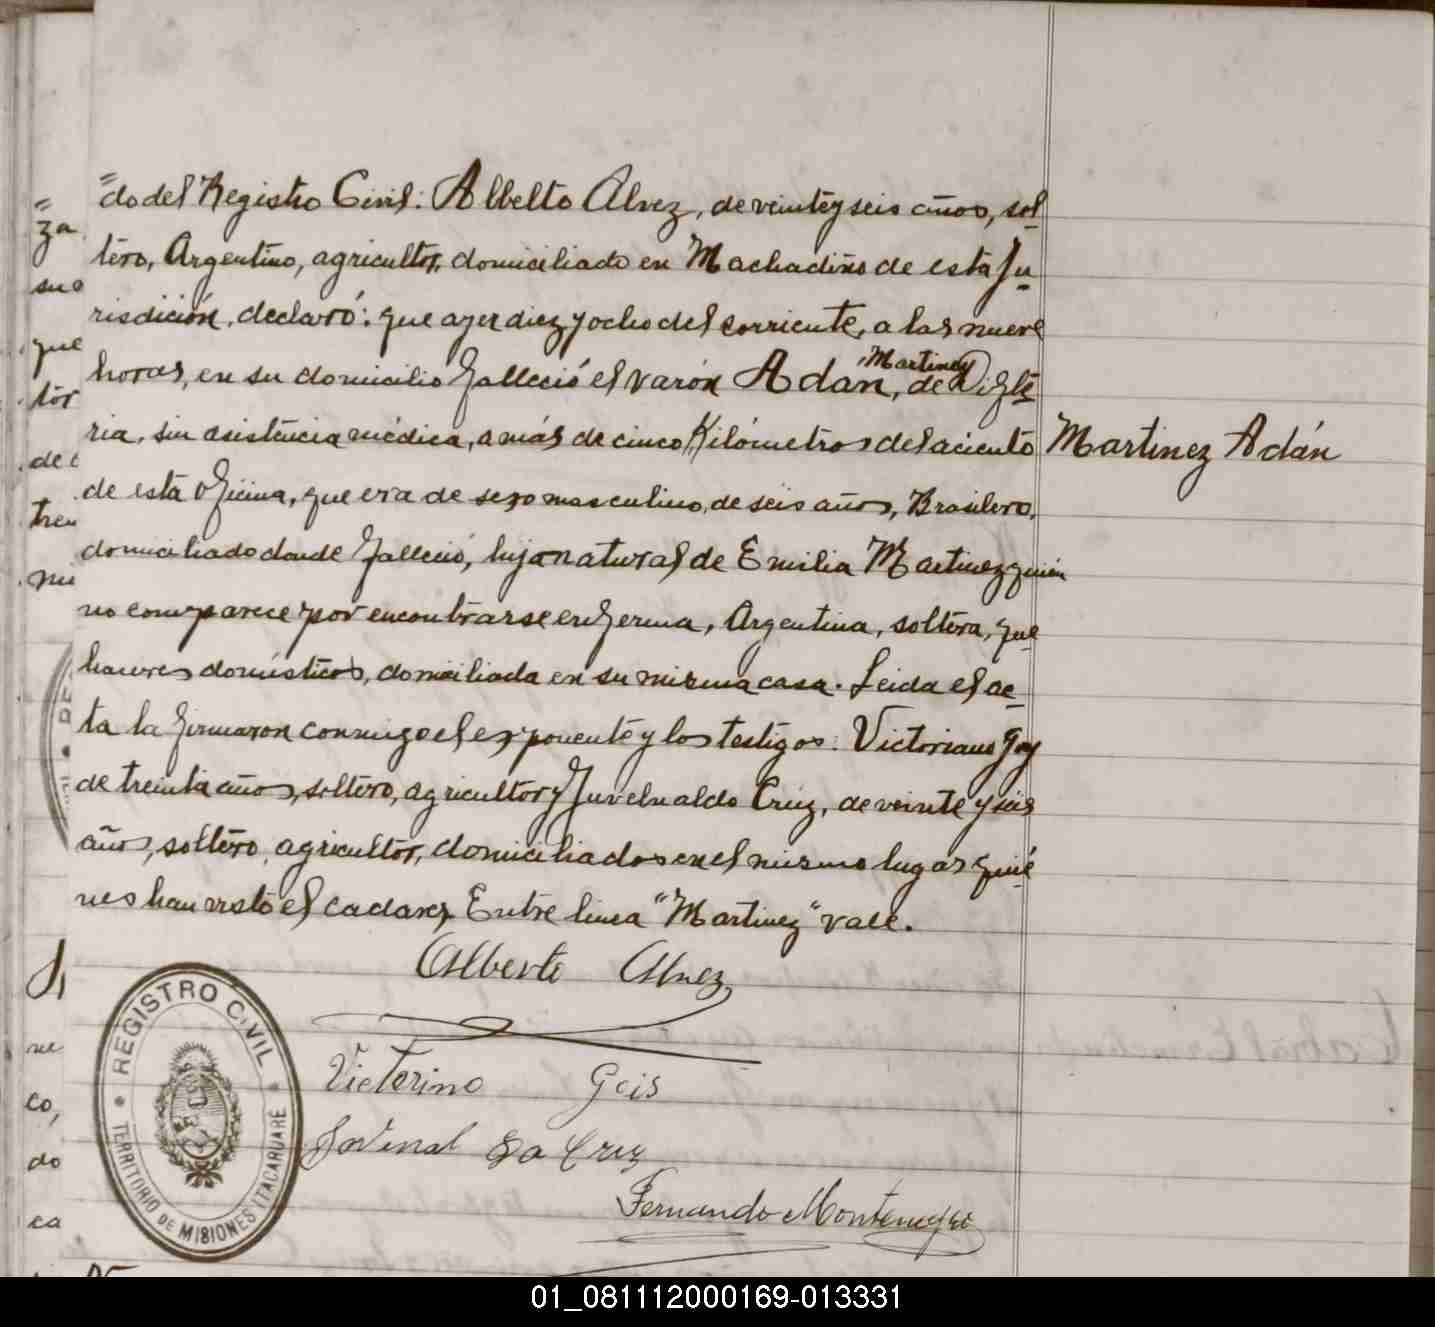 do del Registro Civil: Alberto Alvez, de veinte y seis años, sol
tero, Argentino, agricultor, domiciliado en Machadiño de esta Ju
risdición, declaró: que ayer diez y ocho del corriente, a las nueve
Martinez
horas, en su domicilio falleció el varón Adan, de Difte
ria, sin asistencia médica, a más de cinco Kilómetros del aciento
Martinez Adán
de esta oficina, que era de sexo masculino, de seis años, Brasilero,
domiciliado donde falleció, hijo natural de Emilia Martinez quien
no comparece por encontrarse enferma, Argentina, soltera, que
haceres domésticos, domiciliada en su misma casa. Leida el ac
ta la firmaron conmigo el exponente y los testigos: Victoriano Goy
de treinta años, soltero, agricultor y Juvelnaldo Cruz, de veinte y seis
años, soltero, agricultor, domiciliados en el mismo lugar quié
nes han visto el cadaver Entre linea "Martinez" vale.
Alberto Alvez
Victorino Gois
Jovenal da Cruz
Fernando Montenegro
REGISTRO CIVIL
TERRITORIO DE MISIONES ITACARUARÉ
za
suo
que
tor
de
tren
mi
ne
co,
do
ca
01_081112000169-013331